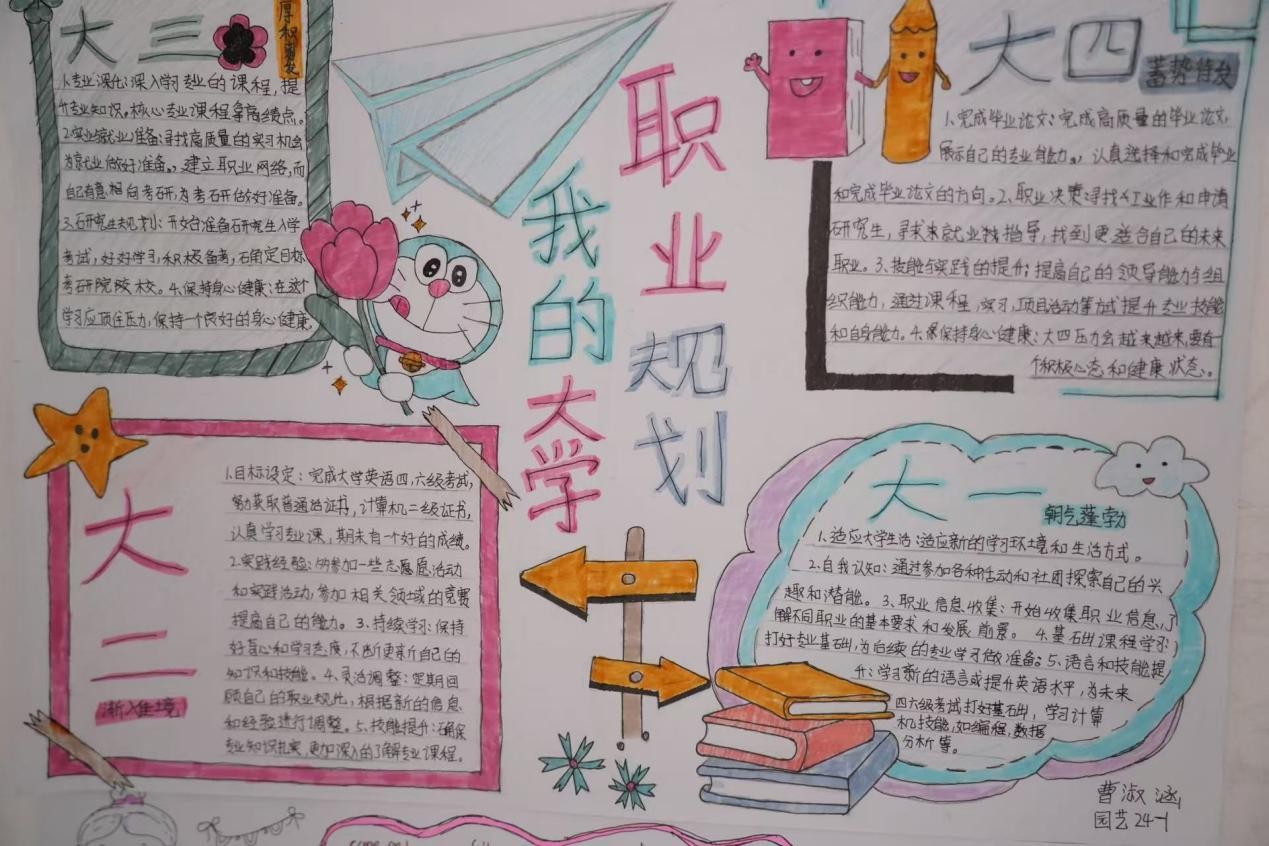 我的大学
职业规划
大三
厚积薄发
1.专业深化:深入学习专业的课程,提
升专业知识。核心专业课程拿高绩点。
2.实业就业准备:寻找高质量的实习机会
为就业做好准备。建立职业网络,而
自己有意想向考研,为考研做好准备。
3.研究生规划:开始准备研究生入学
考试,好好学习,积极备考,确定目标
考研院校校。4.保持身心健康:在这个
学习应顶住压力,保持一个良好的身心健康。
大四
蓄势待发
1.完成毕业论文:完成高质量的毕业论文,
展示自己的专业能力。,认真选择和完成毕业
和完成毕业论文的方向。2.职业决策:寻找工业作和申请
研究生,寻求来就业指导,找到更适合自己的未来
职业。3.技能与实践的提升:提高自己的领导能力与组
织能力,通过课程,实习,项目活动等方式提升专业技能
和自身能力。4.保保持身心健康:大四压力会越来越来,要有一
个积极心态和健康状态。
大二
渐入佳境
1.目标设定:完成大学英语四、六级考试,
努力获取普通话证书,计算机二级证书,
认真学习专业课,期末有一个好的成绩。
2.实践经验:参加一些志愿愿活动
和实践活动,参加相关领域的竞赛
提高自己的能力。3.持续学习:保持
好奇心和学习态度,不断更新自己的
知识和技能。4.灵活调整:定期回
顾自己的职业规化,根据新的信息
和经验进行调整。5.技能提升:确保
专业知识扎实,更加深入的了解专业课程。
大一
朝气蓬勃
1.适应大学生活:适应新的学习环境和生活方式。
2.自我认知:通过参加各种活动和社团探索自己的兴
趣和潜能。3.职业信息收集:开始收集职业信息,了
解不同职业的基本要求和发展前景。4.基础课程学习:
打好专业基础,为后续的专业学习做准备。5.语言和技能提
升:学习新的语言或提升英语水平,为未来
四六级考试打好基础,学习计算
机技能,如编程,数据
分析等。
曹淑涵
园艺24-1